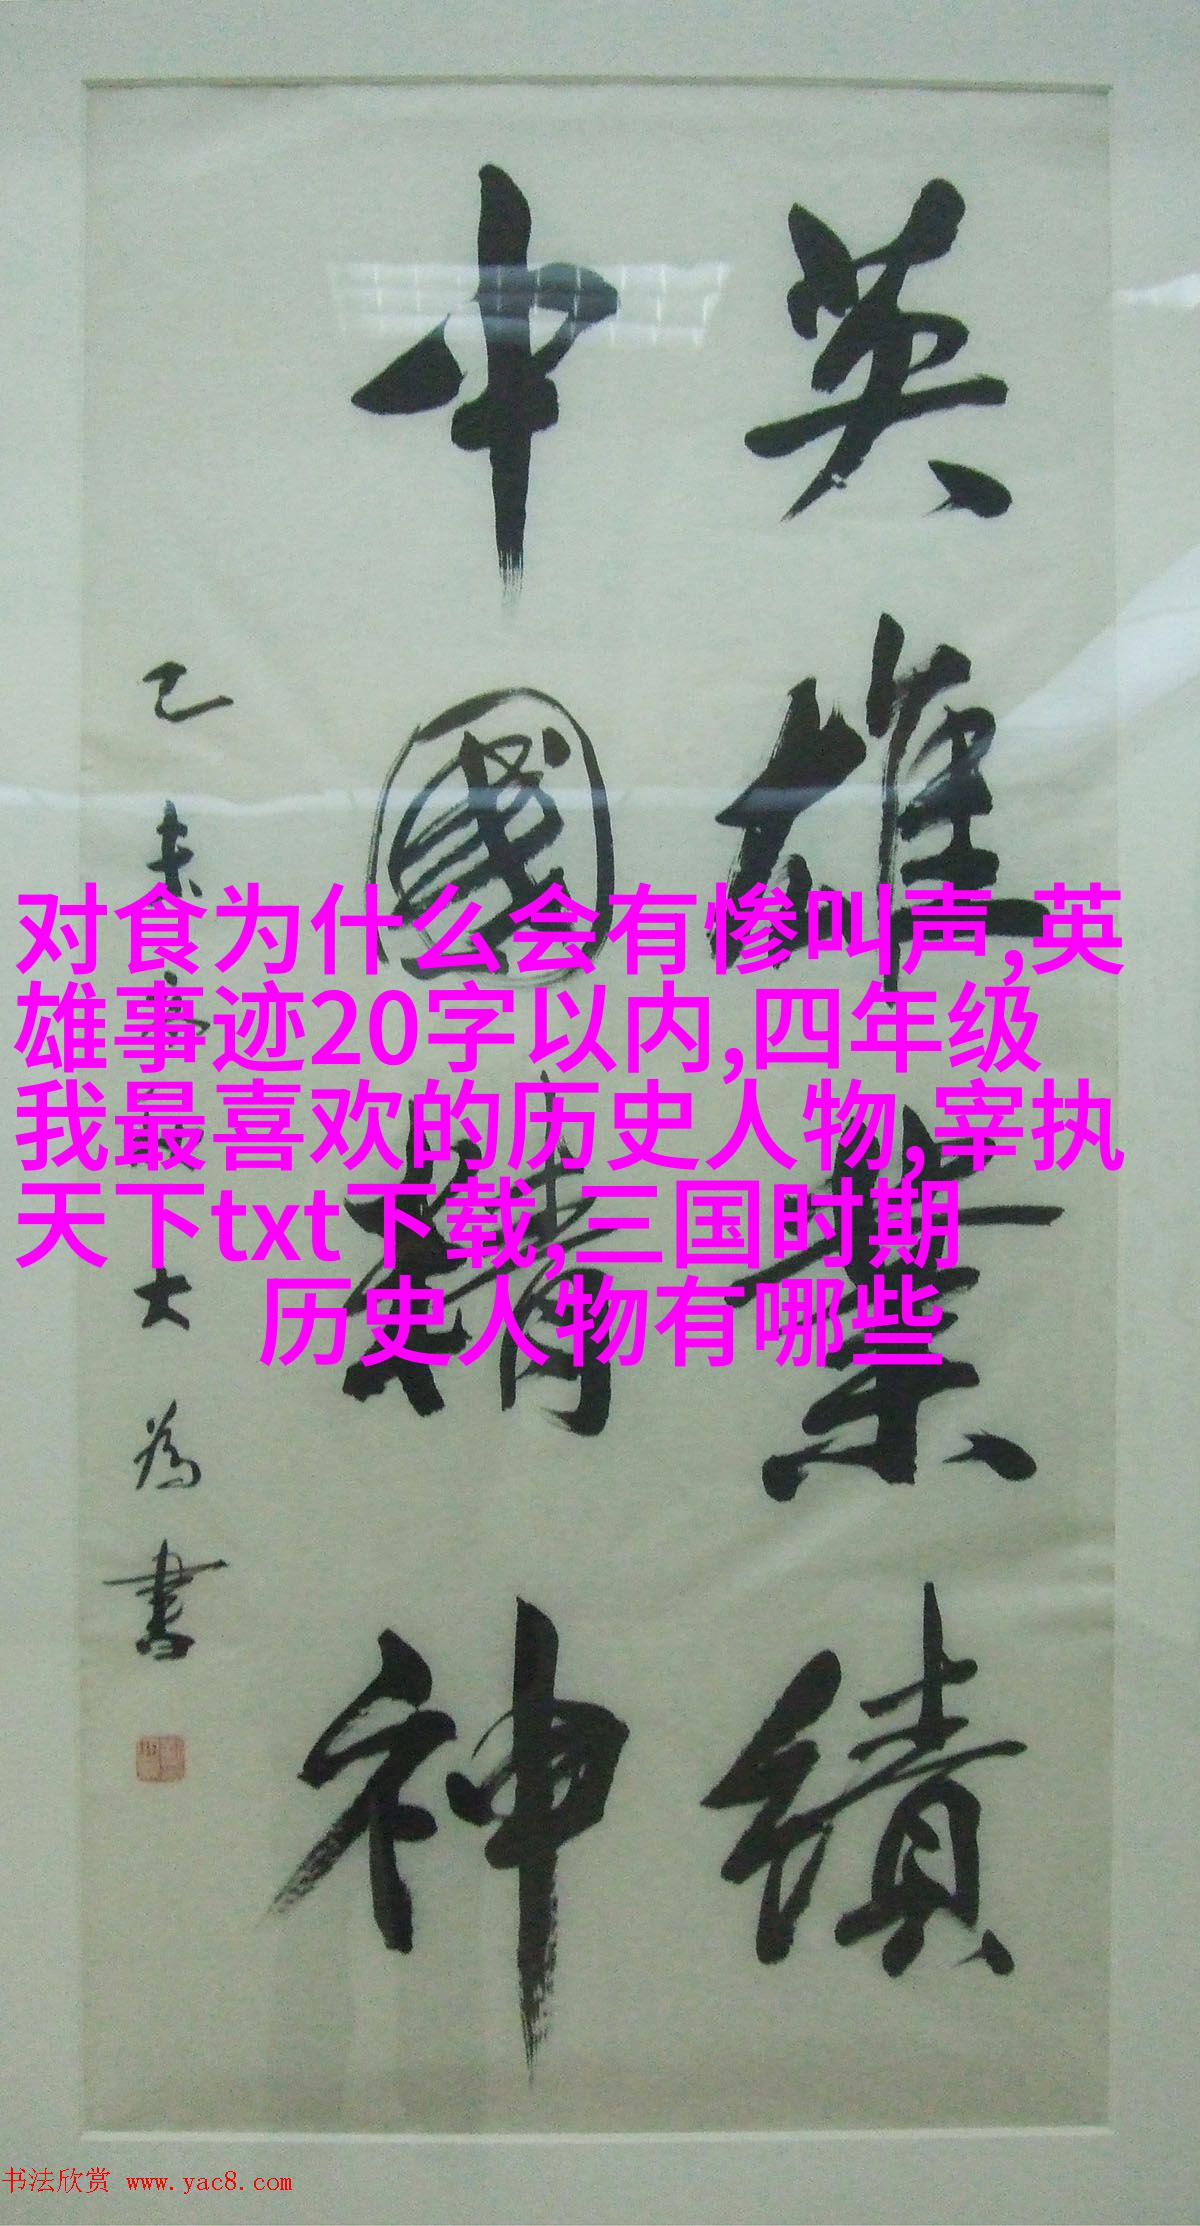 英雄業績
中國精神
乙未年
大為書
对食为什么会有惨叫声,英
雄事迹20字以内,四年级
我最喜欢的历史人物,宰执
天下txt下载,三国时期
历史人物有哪些
书法欣赏 www.yac8.com